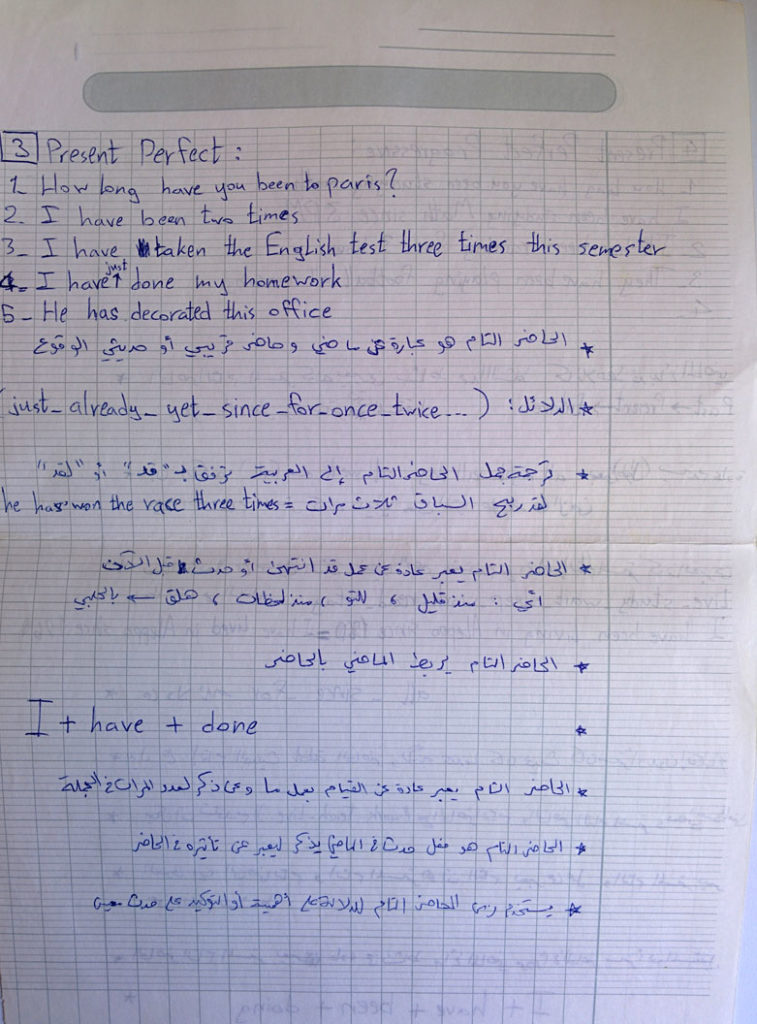 3 Present Perfect :
1. How long have you been to paris?
2. I have been two times
3_ I have taken the English test three times this semester
4_ I have just done my homework
5_ He has decorated this office
* الحاضر التام هو عبارة عن ماضي وحاضر قريبي أو حديثي الوقوع
* الدلائل: (just_already_yet_since_for_once_twice...)
* ترجمة جمل الحاضر التام إلى العربية ترفق بـ "قد" أو "لقد"
he has won the race three times = لقد ربح السباق ثلاث مرات
* الحاضر التام يعبر عادة عن عمل قد انتهى أو حدث قبل الآن
أي : منذ قليل ، للتو ، منذ لحظات ، هلق ← بالحلبي
* الحاضر التام يربط الماضي بالحاضر
* I + have + done
* الحاضر التام يعبر عادة عن القيام بعمل ما و ذكر لعدد المرات في الجملة
* الحاضر التام هو فعل حدث في الماضي يذكر ليعبر عن تأثيره في الحاضر
* يستخدم زمن الحاضر التام للدلالة على أهمية أو التوكيد على حدث معين